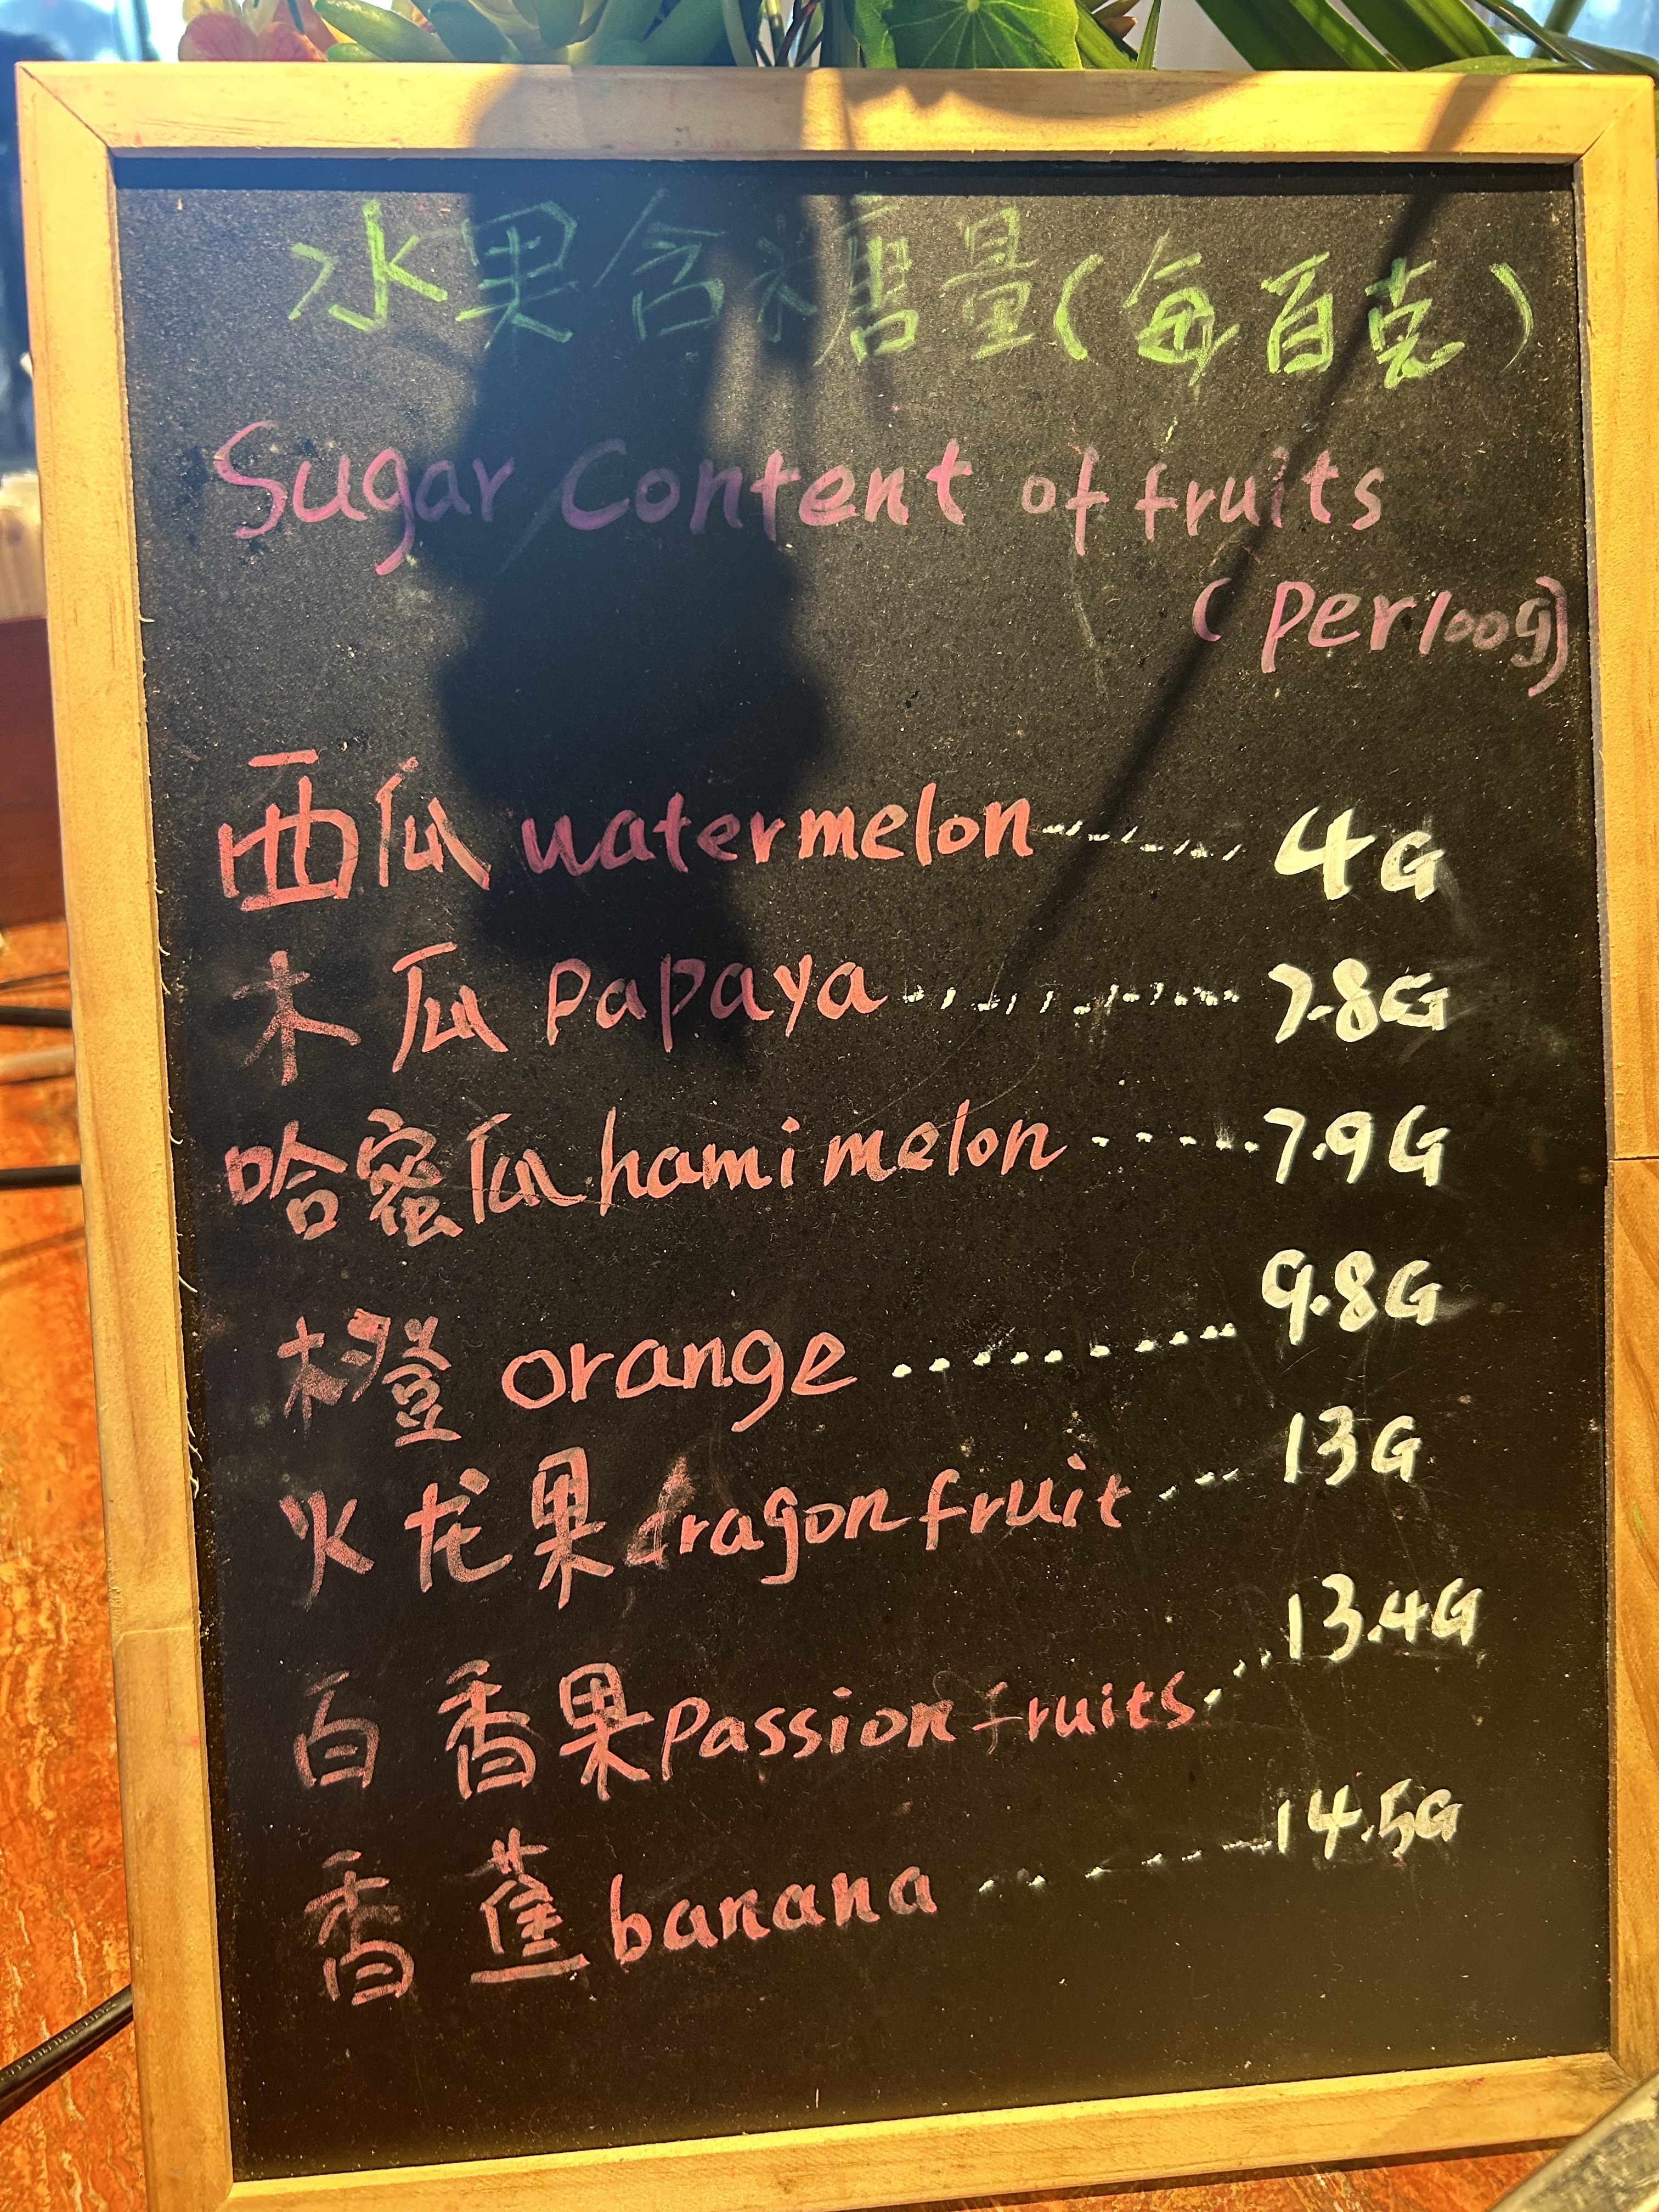 水果含糖量(每百克)
Sugar Content of fruits
(per100g)
西瓜 watermelon ........ 4G
木瓜 Papaya ............ 7.8G
哈密瓜 hami melon ...... 7.9G
橙 orange .......... 9.8G
火龙果 dragon fruit ... 13G
百香果 Passion fruits ... 13.4G
香蕉 banana ....... 14.5G